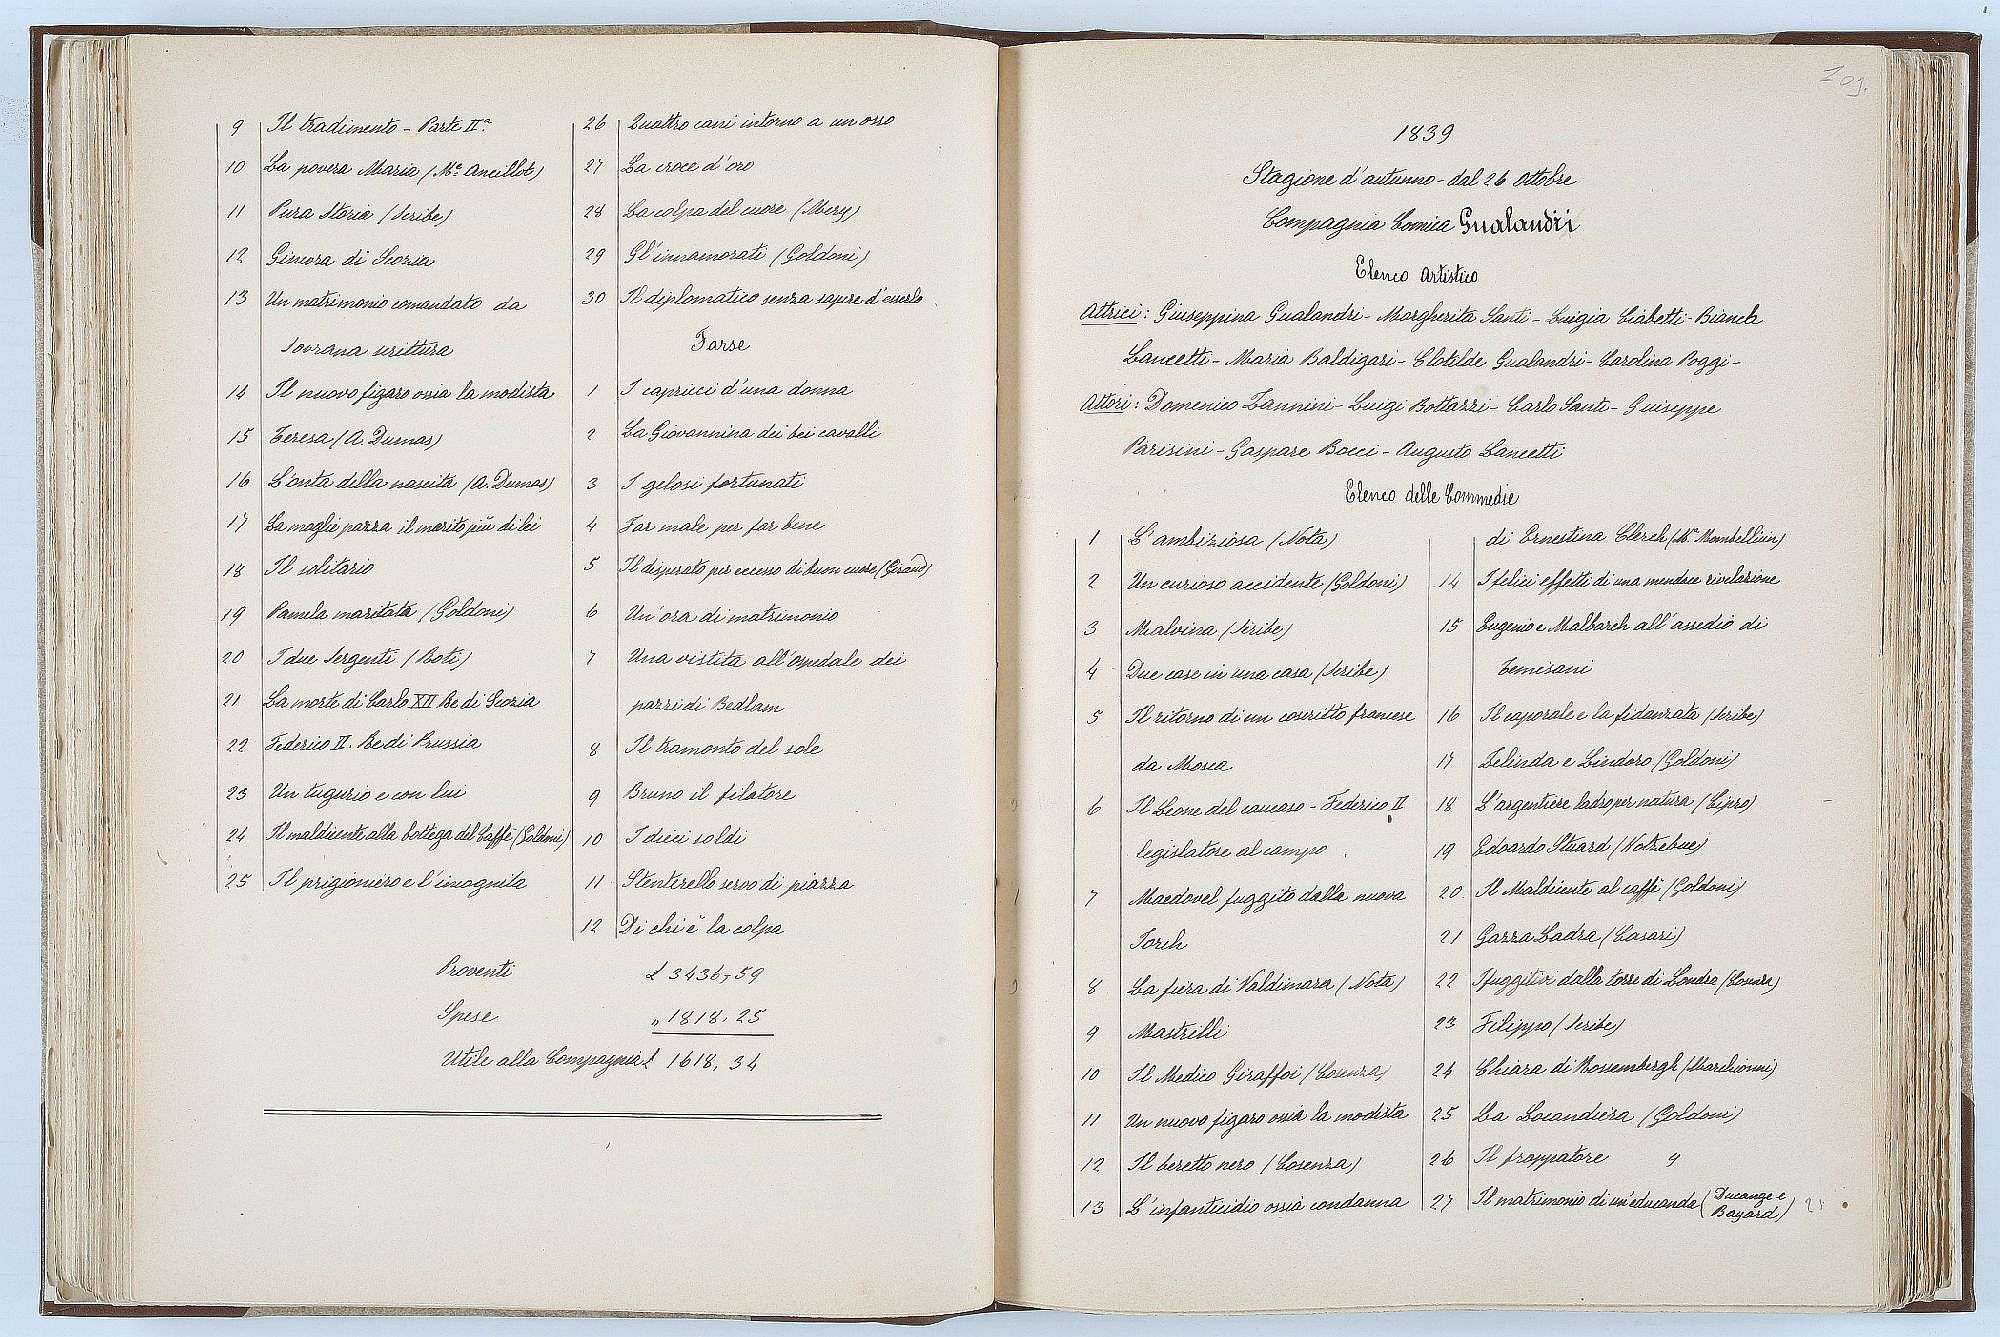 9 Il tradimento - Parte IIª.
10 La povera Maria (Mᵉ Ancillot)
11 Pura Storia (Scribe)
12 Ginevra di Scozia
13 Un matrimonio comandato da
sovrana scrittura
14 Il nuovo figaro ossia la modista
15 Teresa (A. Dumas)
16 L'onta della nascita (A. Dumas)
17 La moglie pazza il marito più di lei
18 Il solitario
19 Pamela maritata (Goldoni)
20 I due Sergenti (Roti)
21 La morte di Carlo XII Re di Scozia
22 Federico II. Re di Prussia
23 Un tugurio e con lui
24 Il maldicente alla bottega del Caffè (Goldoni)
25 Il prigioniero e l'incognita
26 Quattro cani intorno a un osso
27 La croce d'oro
28 La colpa del cuore (Mery)
29 Gl'innamorati (Goldoni)
30 Il diplomatico senza sapere d'esserlo
Farse
1 I capricci d'una donna
2 La Giovannina dei bei cavalli
3 I gelosi fortunati
4 Far male per far bene
5 Il disperato per eccesso di buon cuore (Giraud)
6 Un'ora di matrimonio
7 Una vistita all'ospedale dei
pazzi di Bedlam
8 Il tramonto del sole
9 Bruno il filatore
10 I dieci soldi
11 Stenterello servo di piazza
12 Di chi è la colpa
Proventi £ 3436,59
Spese „ 1818,25
Utile alla Compagnia £ 1618,34
109.
1839
Stagione d'autunno - dal 26 Ottobre
Compagnia Comica Gualandri
Elenco Artistico
Attrici: Giuseppina Gualandri - Margherita Santi - Luigia Ciabetti - Bianca
Lancetti - Maria Baldigari - Clotilde Gualandri - Carolina Poggi -
Attori: Domenico Zannini - Luigi Bottazzi - Carlo Santi - Guiseppe
Parisini - Gaspare Bocci - Augusto Lancetti
Elenco delle Commedie
1 L'ambiziosa (Nota)
2 Un curioso accidente (Goldoni)
3 Malvina (Scribe)
4 Due case in una casa (Scribe)
5 Il ritorno di un coscritto francese
da Mosca
6 Il Leone del caucaso - Federico II
legislatore al campo
7 Macdovel fuggito dalla nuova
Jorch
8 La fiera di Valdimara (Nota)
9 Mastrilli
10 Il Medico Giraffoi (Cosenza)
11 Un nuovo figaro ossia la modista
12 Il beretto nero (Cosenza)
13 L'infanticidio ossia condanna
di Ernestina Clerch (Mʳ Mombelliun)
14 I felici effetti di una mendace rivelazione
15 Eugenio e Malborch all'assedio di
Temisani
16 Il caporale e la fidanzata (Scribe)
17 Zelinda e Lindoro (Goldoni)
18 L'argentiere ladro per natura (Cipro)
19 Edoardo Stuard (Kotzebue)
20 Il Maldicente al caffè (Goldoni)
21 Gazza Ladra (Casari)
22 I fuggitivi dalla torre di Londra (Cosenza)
23 Filippo (Scribe)
24 Chiara di Rossembergh (Marchionni)
25 La Locandiera (Goldoni)
26 Il frappatore "
27 Il matrimonio di un'educanda (Ducange e
Bayard)